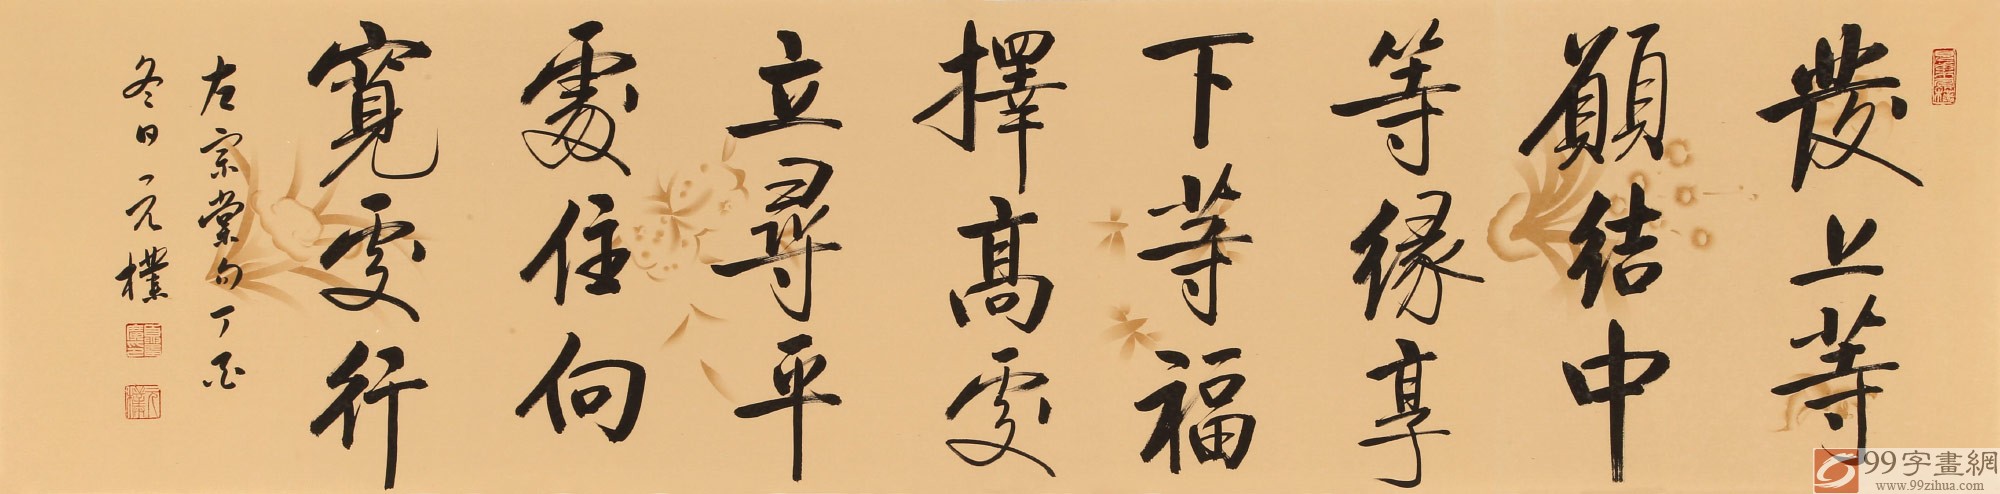 發上等
願結中
等緣享
下等福
擇高處
立尋平
處住向
寬處行
左宗棠句丁酉
冬日元樸
99字畫網
www.99zihua.com